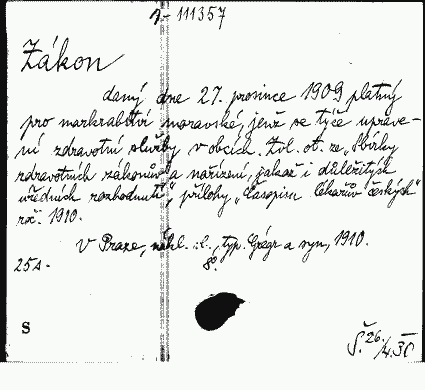 1-111357
Zákon
daný dne 27. prosince 1909 platný
pro markrabství moravské, jenž se týče uprave-
ní zdravotní služby v obcích. Zvl. ot. ze „Sbírky
zdravotních zákonův a nařízení, jakož i důležitých
úředních rozhodnutí“, přílohy „Časopisu lékařův českých“
roč. 1910.
V Praze, nákl. , typ. Grégr a syn, 1910.
25 s. 8°.
S
Š. 26./4. 38